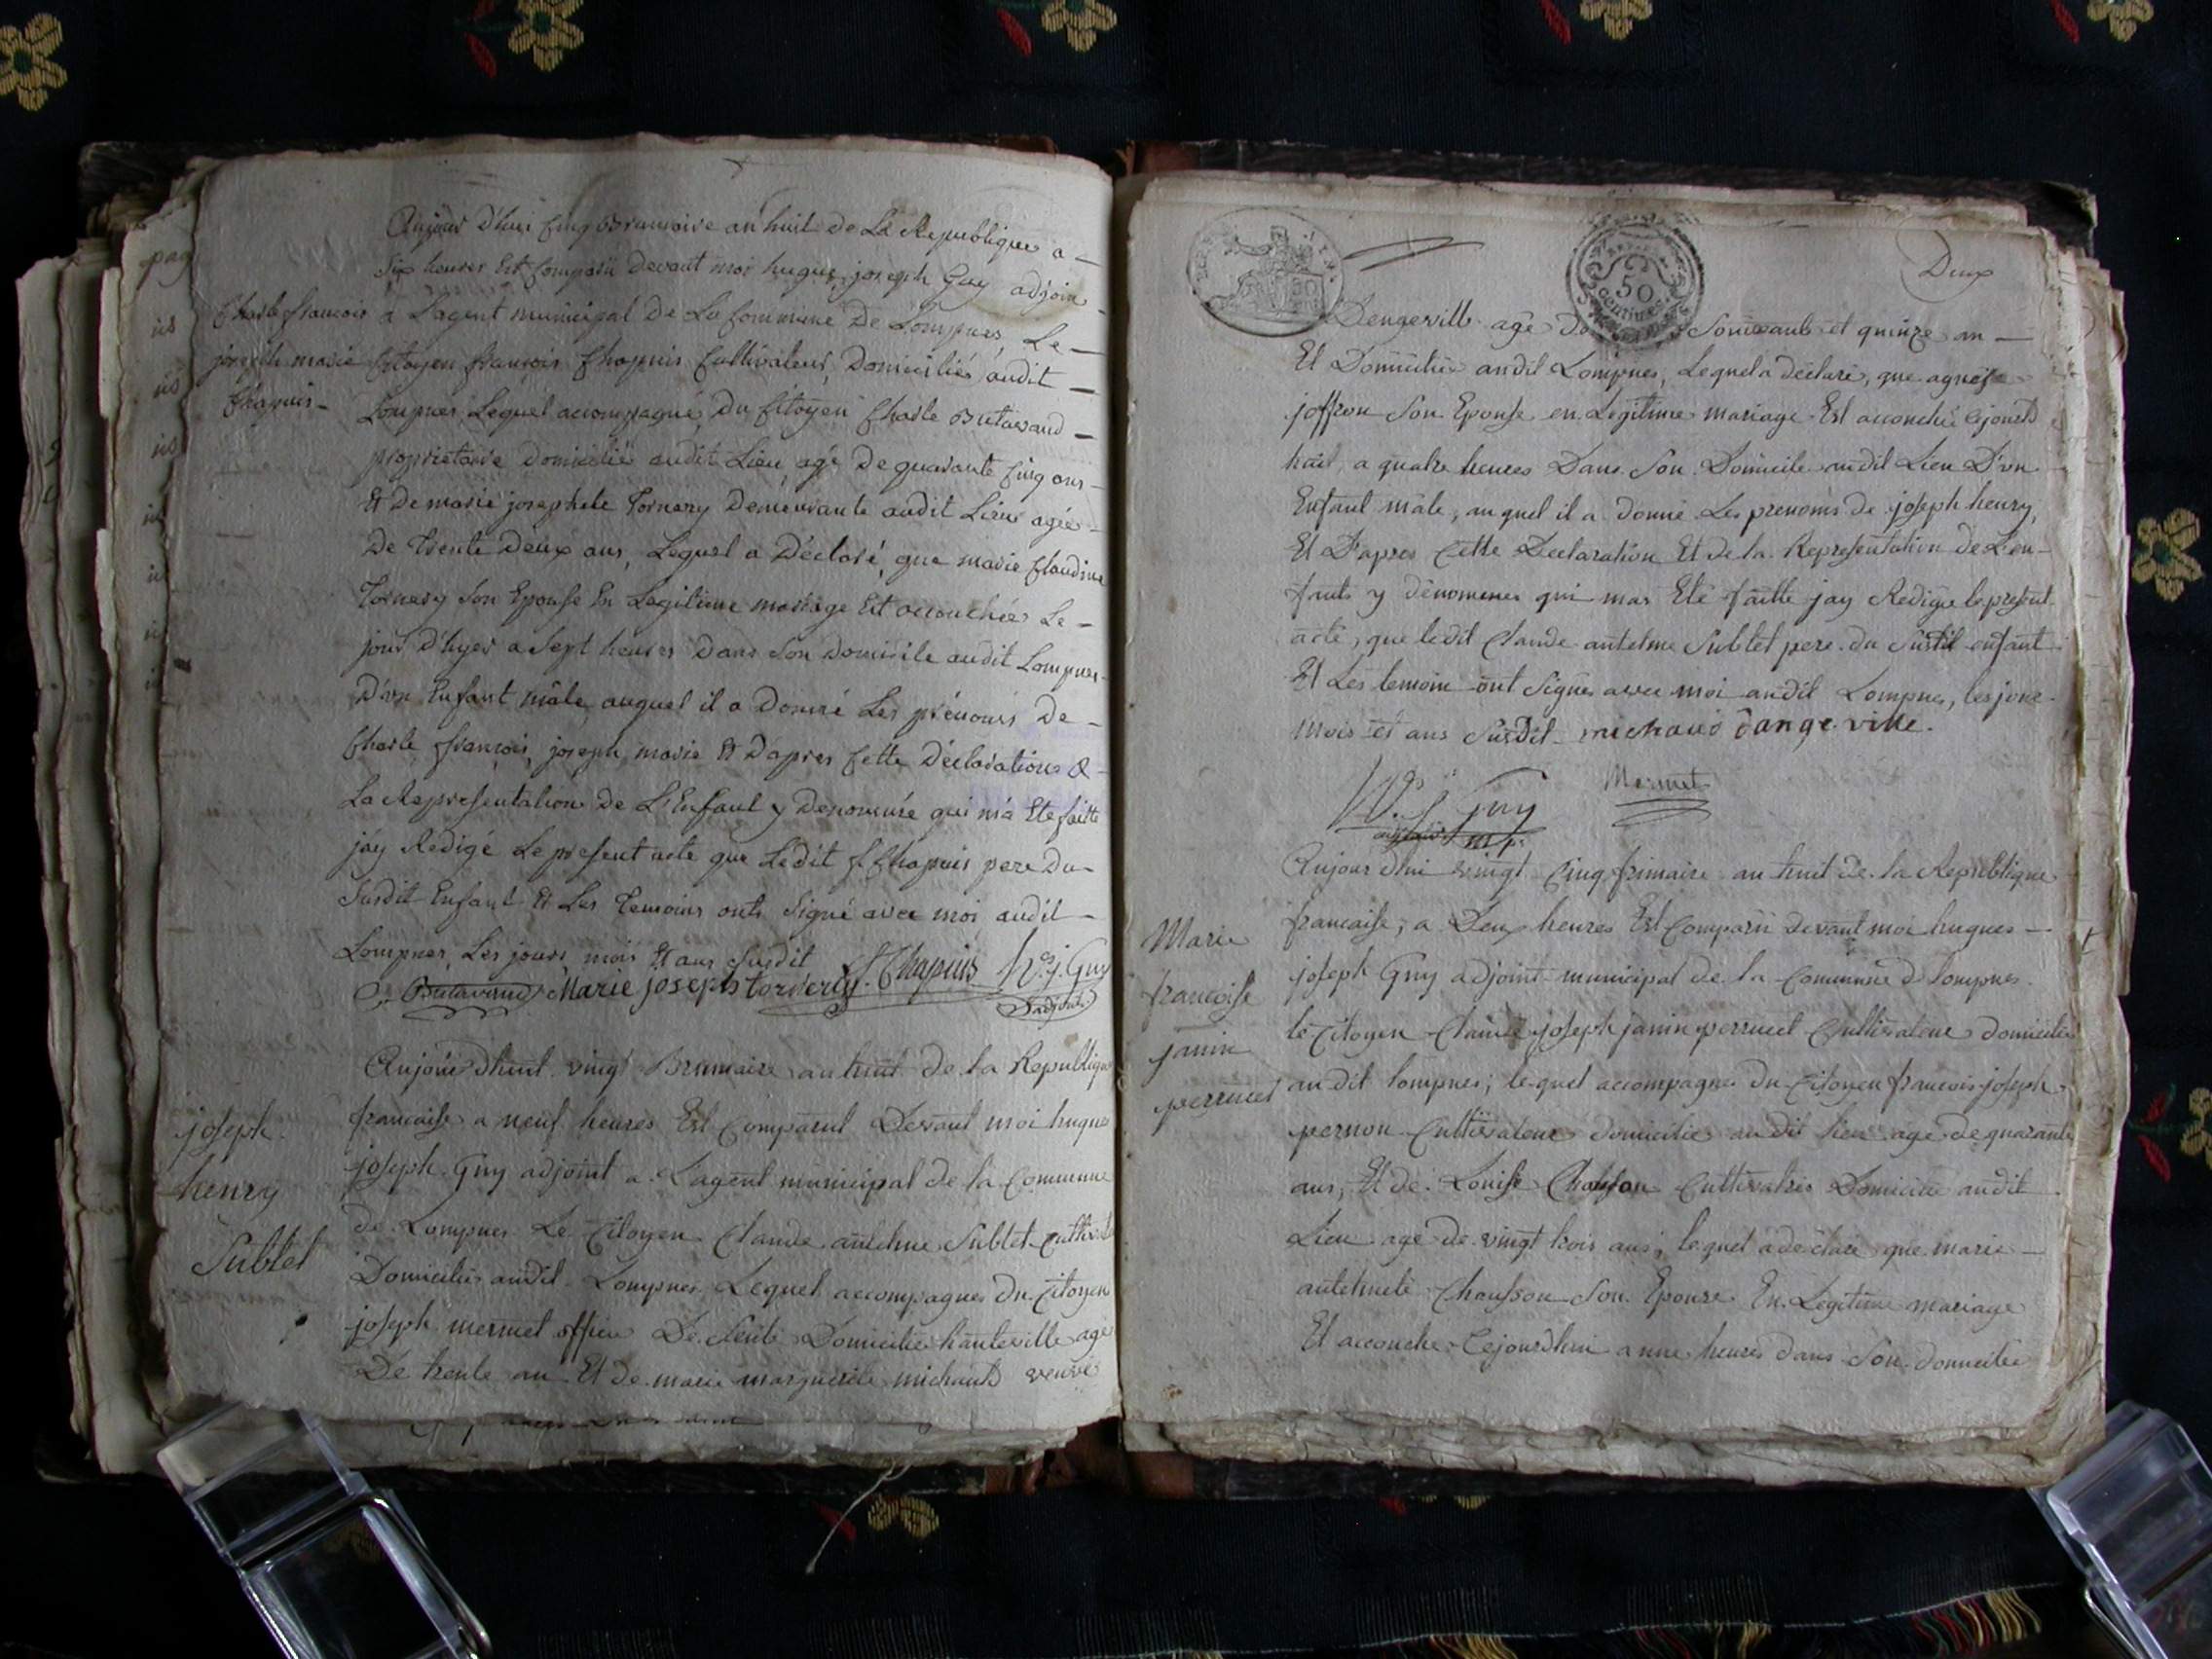 Aujour d'hui Cinq Brumaire an huit de La Republique a
Six heures Est Comparu devant moi hugue joseph Guy adjoin
Charle francois
joseph marie
Chapuis
a L'agent municipal de La Commune De Lompnes, Le
Citoyen françois Chapuis Cultivateur, Domicilié audit
Lompnes, Lequel accompagné, Du Citoyen Charle Butavand
proprietaire domicilié audit Lieu, agé De quarante Cinq ans
Et De marie josephete Tornery Demeurante audit Lieu agée
De Trente Deux ans, Lequel a Déclaré, que marie Claudine
Tornery Son Epouse En Legitime mariage Est accouchée Le
jour d'hyer a Sept heures Dans Son Domicile audit Lompnes
D'vn Enfant mâle, auquel il a Donné Les prénoms De
Charle françois, joseph, marie Et D'apres Cette Déclaration &
La Representation De L'Enfant y Denommé qui m'a Eté faitte
j'ay Redigé Le present acte que Ledit f. Chapuis pere Du
Susdit Enfant Et Les Temoins onts Signé avec moi, audit
Lompnes, Les jours, mois Et ans Susdit f Chapuis h.es j. Guy
C. Butavand Marie joseph torneri adjoint
joseph
henry
Sublet
Aujourdhuit vingt Brumaire an huit De la Republique
francaise a neuf heures Est Comparut Devant moi hugue
joseph Guy adjoint a L'agent municipal de la Commune
de Lompnes Le Citoyen Claude antelme Sublet Cultivat
Domicilié audit Lompnes Lequel accompagnes Du Citoyen
joseph mermet officie De Senté Domicilié hauteville agé
De trente an Et de marie marguerite michaud veuve
Deux
50
CENTIMES
Dengeville agé de Soixeante et quinze an
Et Domicilié audit Lompnes, Lequel a déclaré, que agnese
joffron Son Epouse en Legitime mariage Est accouché Cejourd
huit, a quatre heures Dans Son Domicile audit Lieu D'vn
Enfant mâle, auquel il a donné Les prenoms de joseph henry,
Et D'apres Cette Declaration Et de la Representation de L'en-
fants y dénomenes qui mas Eté faitte jay Redigé le present
acte, que ledit Claude antelme Sublet pere du Susdit enfant
Et Les temoin ont Signes avec moi audit Lompnes, les jour
mois et ans Susdit michaud dangeville
h.es j. Guy Mermet
adjoint mpl
Marie
francoise
janin
perrucet
Aujourdhui vingt Cinq frimaire an huit de la Republique
francaise, a Deux heures Est Comparu devant moi hugues
joseph Guy adjoint municipal de la Commune d Lompnes
le Citoyen Claude joseph janin perrucet Cultivateur domicilié
audit lompnes; lequel accompagnes Du Citoyen francois joseph
pernon Cultivateur domicilié audit lieu agé de quarante
ans, Et de Louise Chausson Cultivatrice Domicilié audit
Lieu agé de vingt trois ans; lequel a declaré que marie
antelmete Chausson Son Epouse En Legitime mariage
Et accouché Cejourdhui a nne heures dans Son domicilie